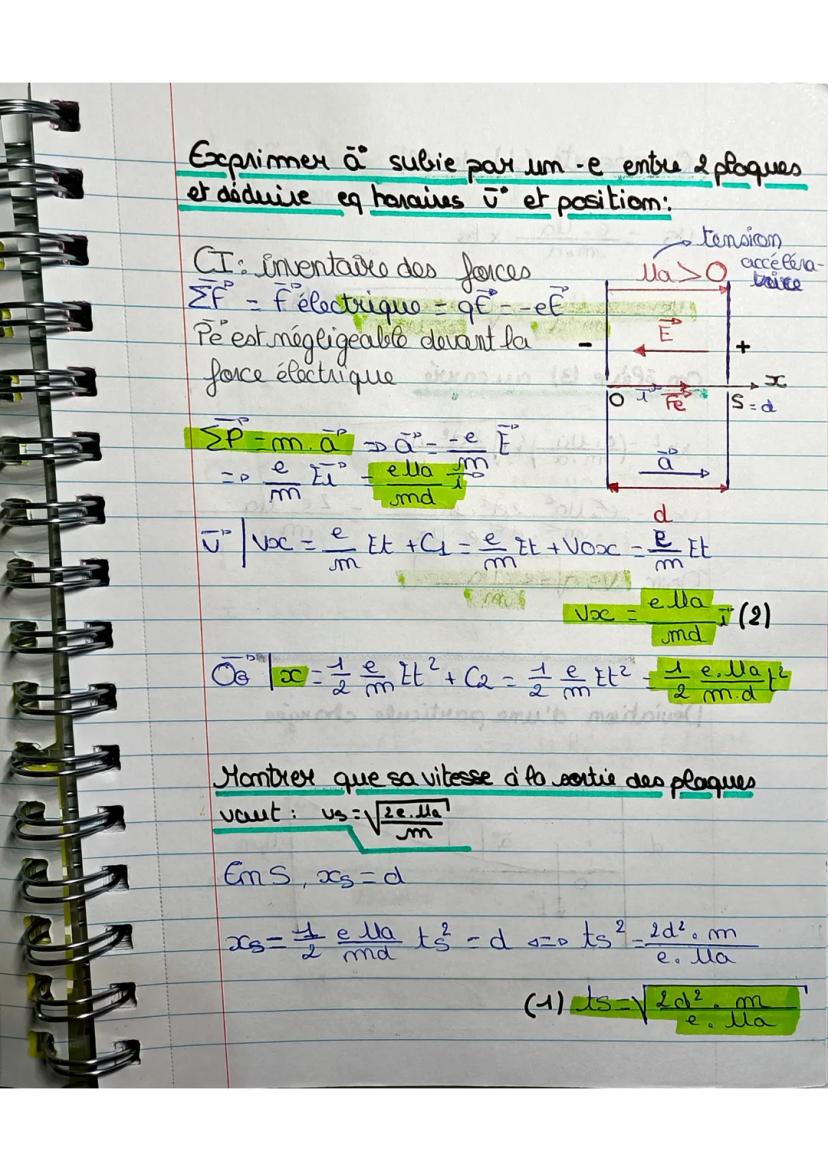 Exprimer a⃗ subie par un -e entre 2 plaques
et déduire eq horaires v⃗ et position:
tension
accéléra-
trice
CI: inventaire des forces
Ua > 0
ΣF⃗ = F⃗ électrique = qE⃗ = -eE⃗
E⃗
P⃗e est négligeable devant la
- +
force électrique
x
O i⃗ F⃗e S = d
ΣF⃗ = m.a⃗ => a⃗ = -e/m E⃗
a⃗
=> e/m E i⃗ = eUa/md i⃗
d
v⃗ | vx = e/m Et + C1 = e/m Et + V0x = e/m Et
vx = eUa/md i⃗ (2)
OG⃗ | x = 1/2 e/m Et² + C2 = 1/2 e/m Et² = 1/2 e.Ua/m.d t²
Montrer que sa vitesse à la sortie des plaques
vaut : vs = √(2e.Ua/m)
En S, xs = d
xs = 1/2 eUa/md ts² = d <=> ts² = 2d².m/e.Ua
(1) ts = √(2d².m/e.Ua)